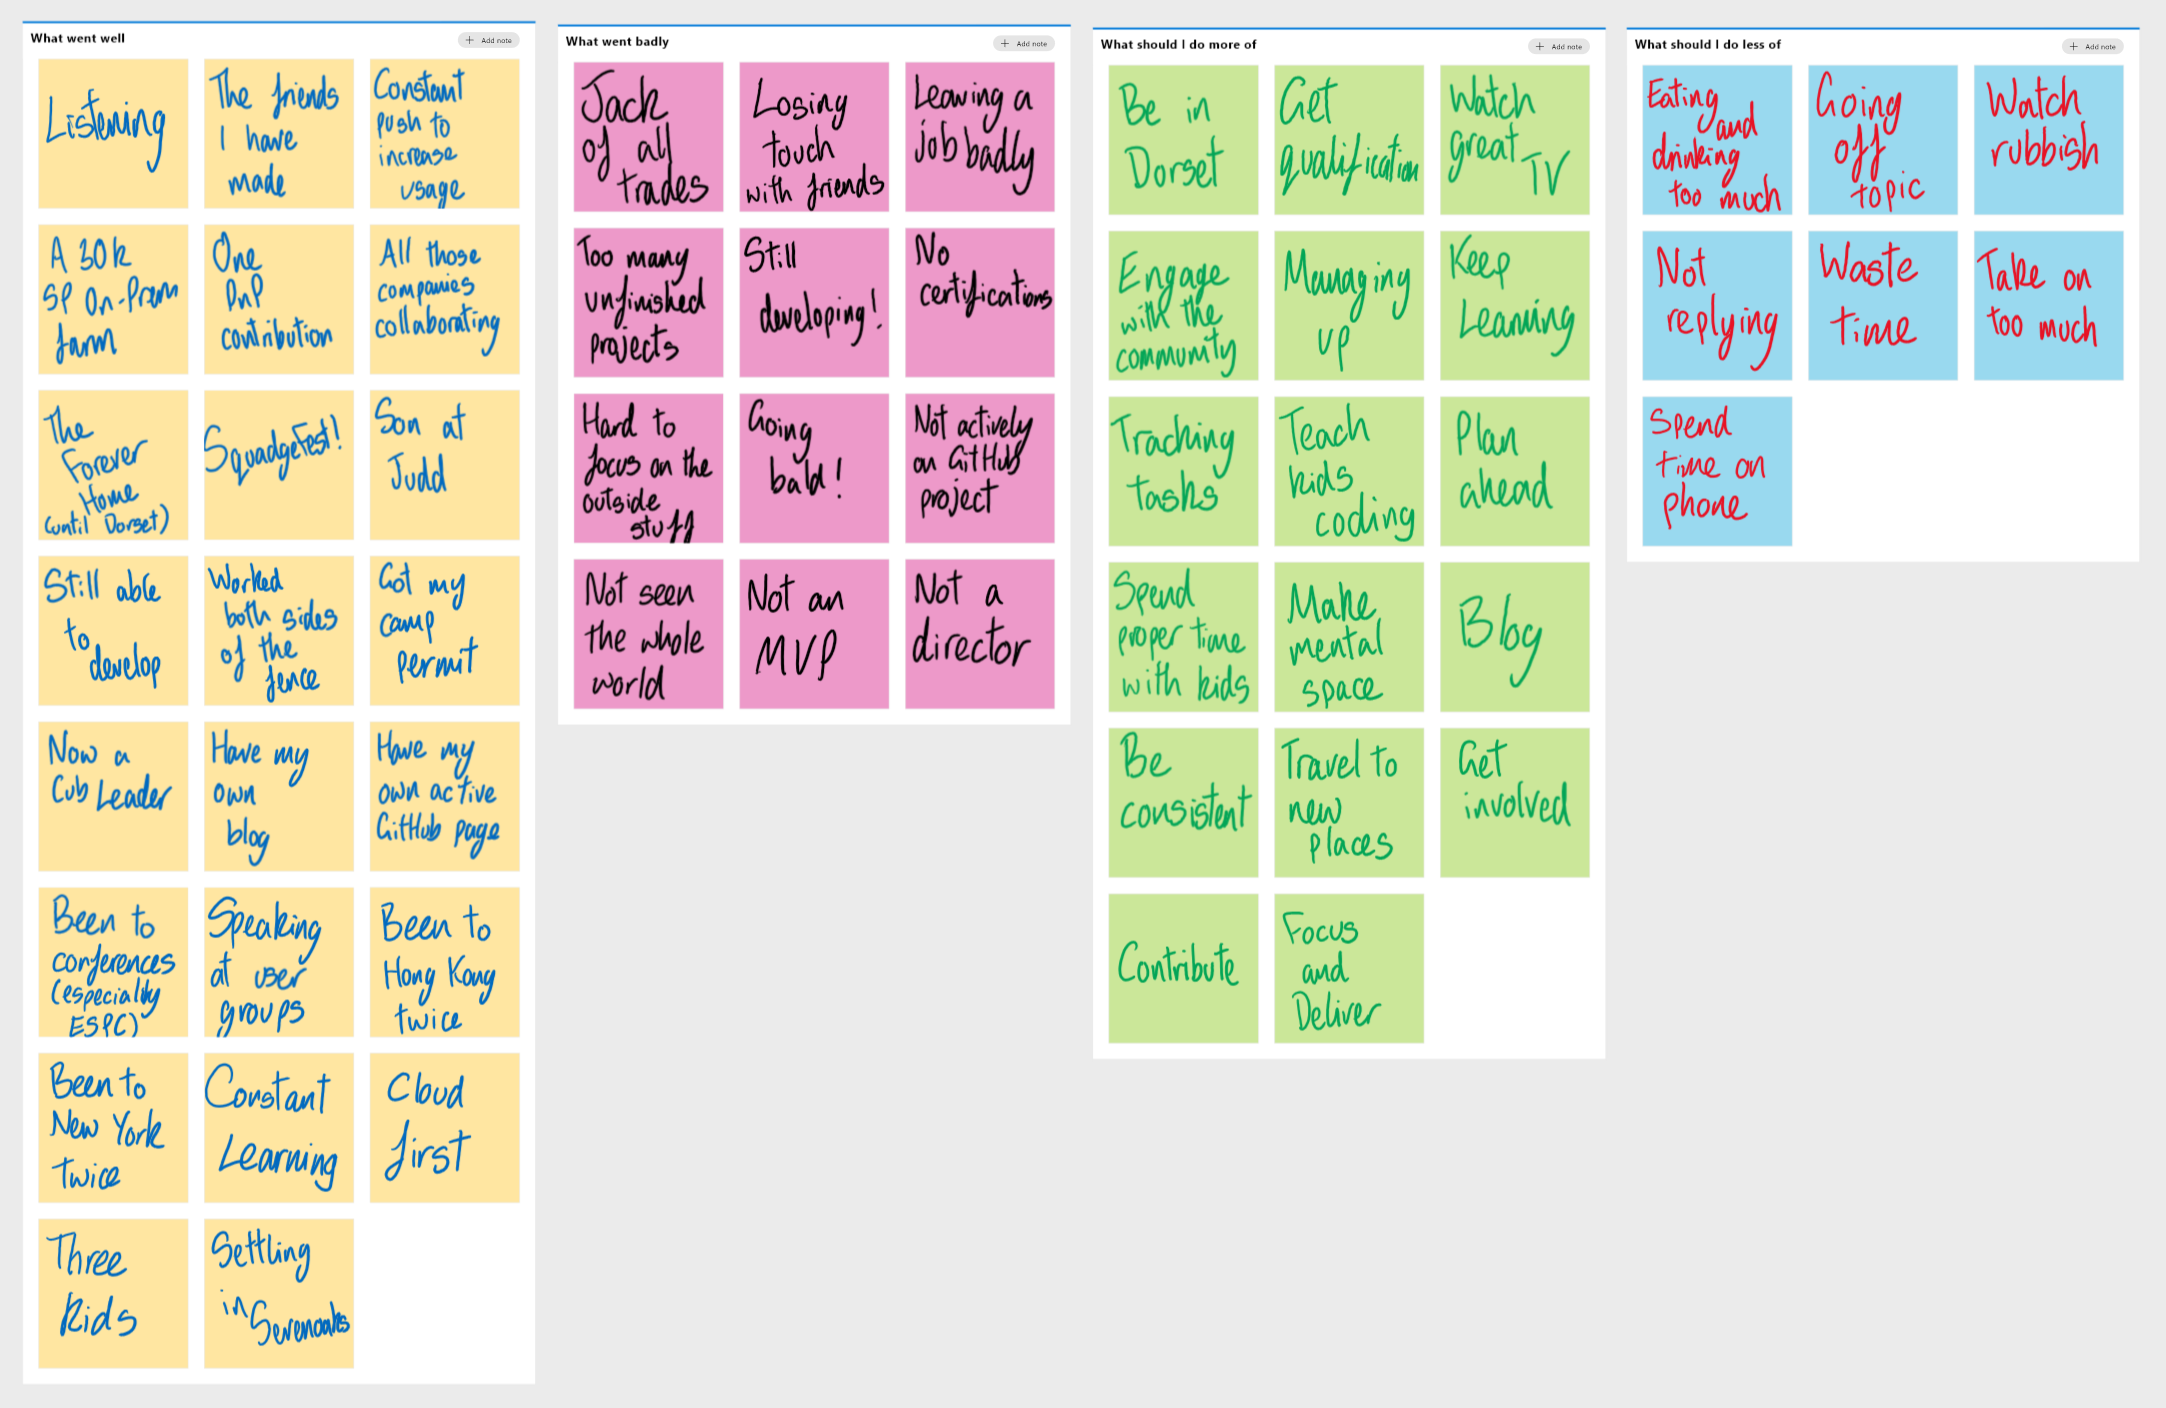 What went well
+ Add note
Listening
The friends
I have
made
Constant
push to
increase
usage
A 30k
SP On-Prem
farm
One
PnP
contribution
All those
companies
collaborating
The
Forever
Home
(until Dorset)
SquadgeFest!
Son at
Judd
Still able
to
develop
Worked
both sides
of the
fence
Got my
camp
permit
Now a
Cub Leader
Have my
own
blog
Have my
own active
GitHub page
Been to
conferences
(especially
ESPC)
Speaking
at user
groups
Been to
Hong Kong
twice
Been to
New York
twice
Constant
Learning
Cloud
first
Three
kids
Settling
in
Sevenoaks
What went badly
+ Add note
Jack
of all
trades
Losing
touch
with friends
Leaving a
job badly
Too many
unfinished
projects
Still
developing!
No
certifications
Hard to
focus on the
outside
stuff
Going
bald!
Not actively
on GitHub
project
Not seen
the whole
world
Not an
MVP
Not a
director
What should I do more of
+ Add note
Be in
Dorset
Get
qualification
Watch
great
TV
Engage
with the
community
Managing
up
Keep
Learning
Tracking
tasks
Teach
kids
coding
Plan
ahead
Spend
proper time
with kids
Make
mental
space
Blog
Be
consistent
Travel to
new
places
Get
involved
Contribute
Focus
and
Deliver
What should I do less of
+ Add note
Eating
and
drinking
too much
Going
off
topic
Watch
rubbish
Not
replying
Waste
time
Take on
too much
Spend
time on
phone